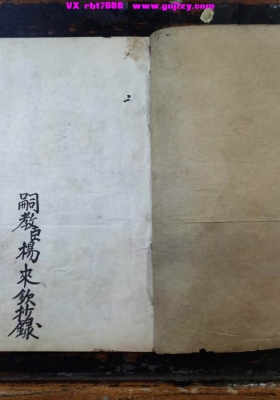 VX rbt7688 www.gujizy.com
二
嗣教臣楊來欽抄錄